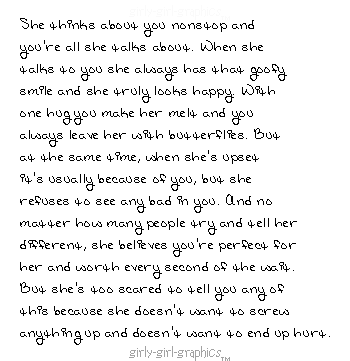 She thinks about you nonstop and
you're all she talks about. When she
talks to you she always has that goofy
smile and she truly looks happy. With
one hug you make her melt and you
always leave her with butterflies. But
at the same time, when she's upset
it's usually because of you, but she
refuses to see any bad in you. And no
matter how many people try and tell her
different, she believes you're perfect for
her and worth every second of the wait.
But she's too scared to tell you any of
this because she doesn't want to screw
anything up and doesn't want to end up hurt.
girly-girl-graphics™